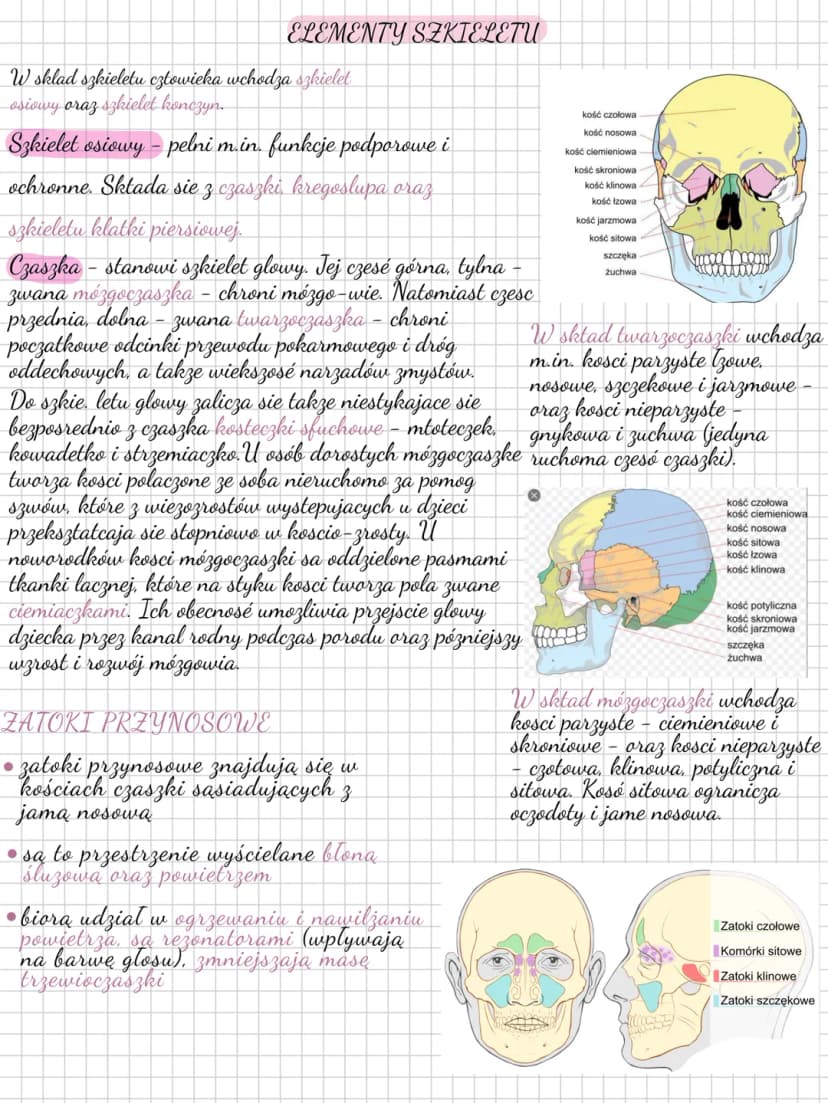 ELEMENTY SZKIELETU
W sklad szkieletu cztowieka wchodza szkielet
osiowy oraz szkielet konczyn.
Szkielet osiowy - pelni m.in. funkcje podporowe i
ochronne. Sktada sie z czaszki, kregoslupa oraz
szkieletu klatki piersiowej.
Czaszka - stanowi szkielet glowy. Jej czesé górna, tylna -
zwana mózgoczaszka - chroni mózgo-wie. Natomiast czesc
przednia, dolna - zwana twarzoczaszka - chroni
poczatkowe odcinki przewodu pokarmowego i dróg
oddechowych, a takze wiekszosé narzadów zmystów.
Do szkie. letu glowy zalicza sie takze niestykajace sie
bezposrednio z czaszka kosteczki sfuchowe - mtoteczek,
kowadetko i strzemiaczko.U osób dorostych mózgoczaszke
tworza kosci polaczone ze soba nieruchomo za pomog
szwów, które z wiezozrostów wystepujacych u dzieci
przeksztatcaja sie stopniowo w koscio-zrosty. U
noworodków kosci mózgoczaszki sa oddzielone pasmami
tkanki lacznej, które na styku kosci tworza pola zwane
ciemiaczkami. Ich obecnosé umozliwia przejscie glowy
dziecka przez kanal rodny podczas porodu oraz pózniejszy
wzrost i rozwój mózgowia.
kość czołowa
kość nosowa
kość ciemieniowa
kość skroniowa
kość klinowa
kość łzowa
kość jarzmowa
kość sitowa
szczęka
żuchwa
W sktad twarzoczaszki wchodza
m.in. kosci parzyste łzowe,
nosowe, szczekowe i jarzmowe -
oraz kosci nieparzyste -
gnykowa i zuchwa (jedyna
ruchoma czesó czaszki).
kość czołowa
kość ciemieniowa
kość nosowa
kość sitowa
kość łzowa
kość klinowa
kość potyliczna
kość skroniowa
kość jarzmowa
szczęka
żuchwa
W sktad mózgoczaszki wchodza
kosci parzyste - ciemieniowe i
skroniowe - oraz kosci nieparzyste
- czotowa, klinowa, potyliczna i
sitowa. Kosó sitowa ogranicza
oczodoty i jame nosowa.
ZATOKI PRZYNOSOWE
• zatoki przynosowe znajdują się w
kościach czaszki sąsiadujących z
jamą nosową
• są to przestrzenie wyścielane błoną
śluzową oraz powietrzem
• biorą udział w ogrzewaniu i nawilżaniu
powietrza, są rezonatorami (wpływają
na barwę głosu), zmniejszają masę
trzewioczaszki
Zatoki czołowe
Komórki sitowe
Zatoki klinowe
Zatoki szczękowe